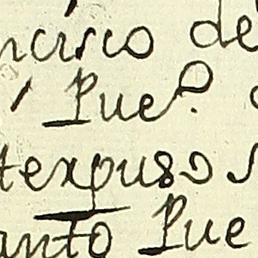 ncisco de
Pueº.
texpuso
anto Pue